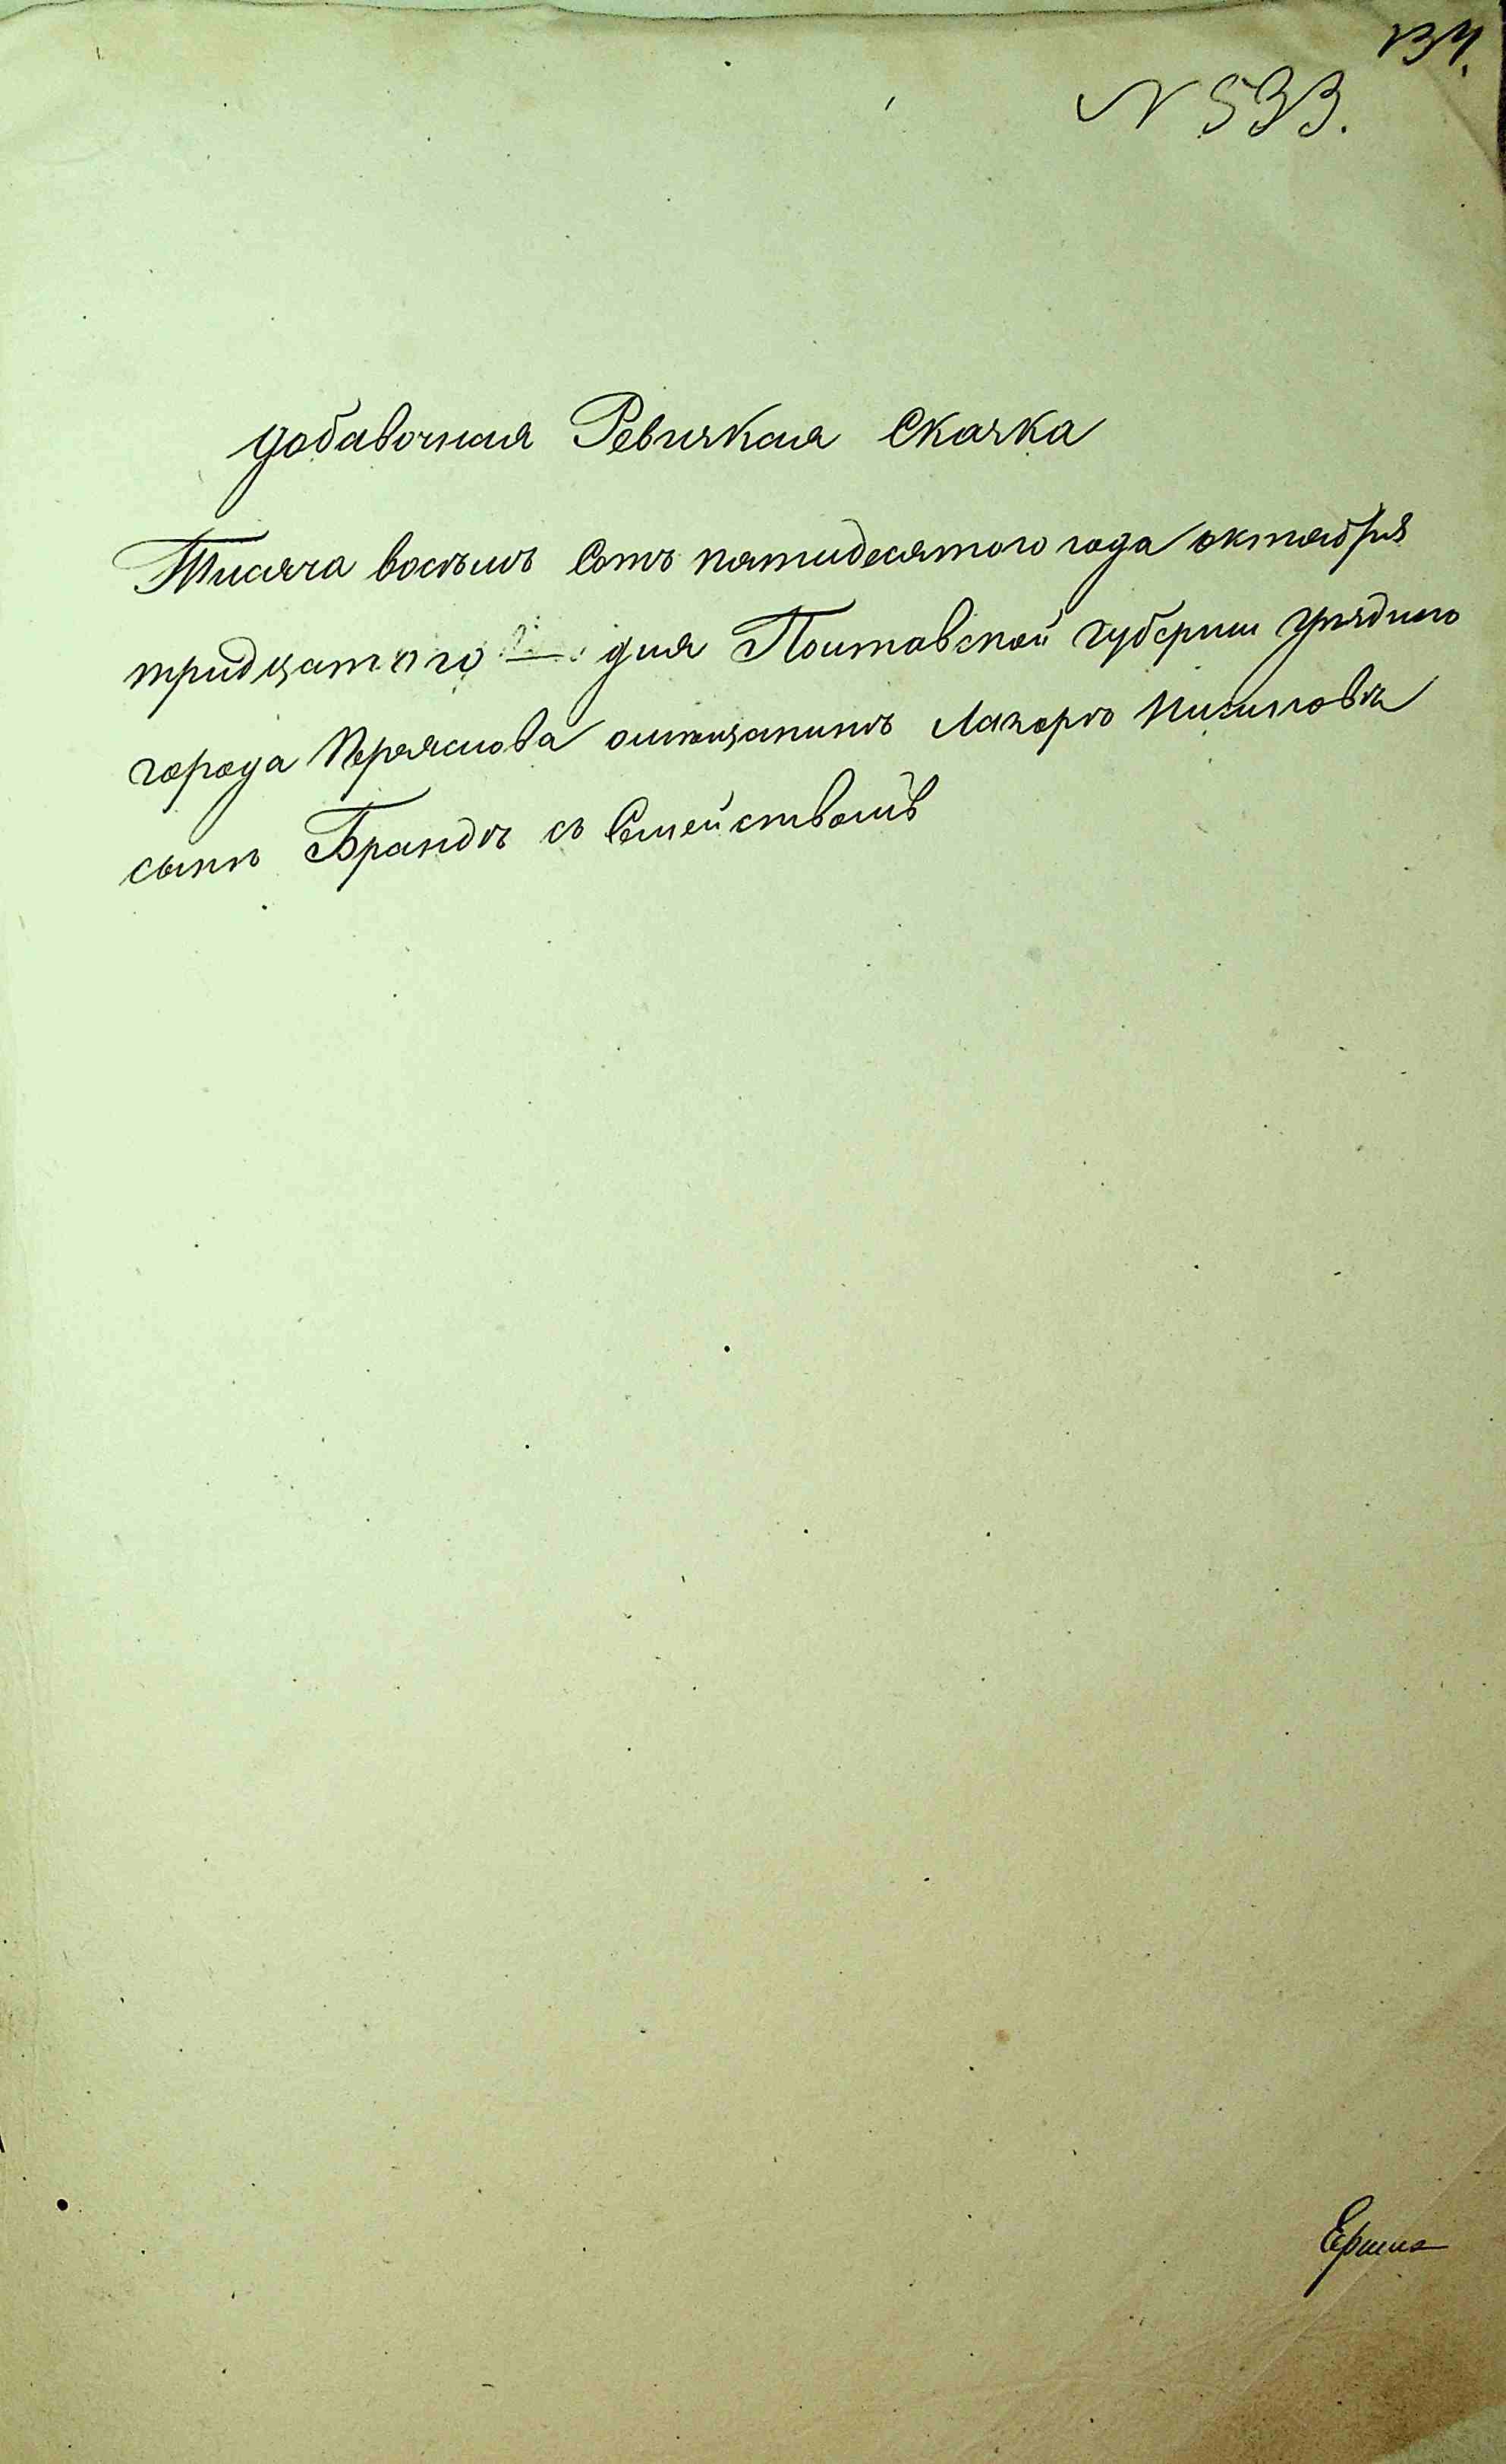 134.
N 533.
добавочная Ревизкая Сказка
Тисяча восемъ Сотъ пятидесятого года октября
тридцатого — дня Полтавской губернии уездного
города Переяслова омещанинъ Лазарь
сынъ Брандъ съ Семействомъ